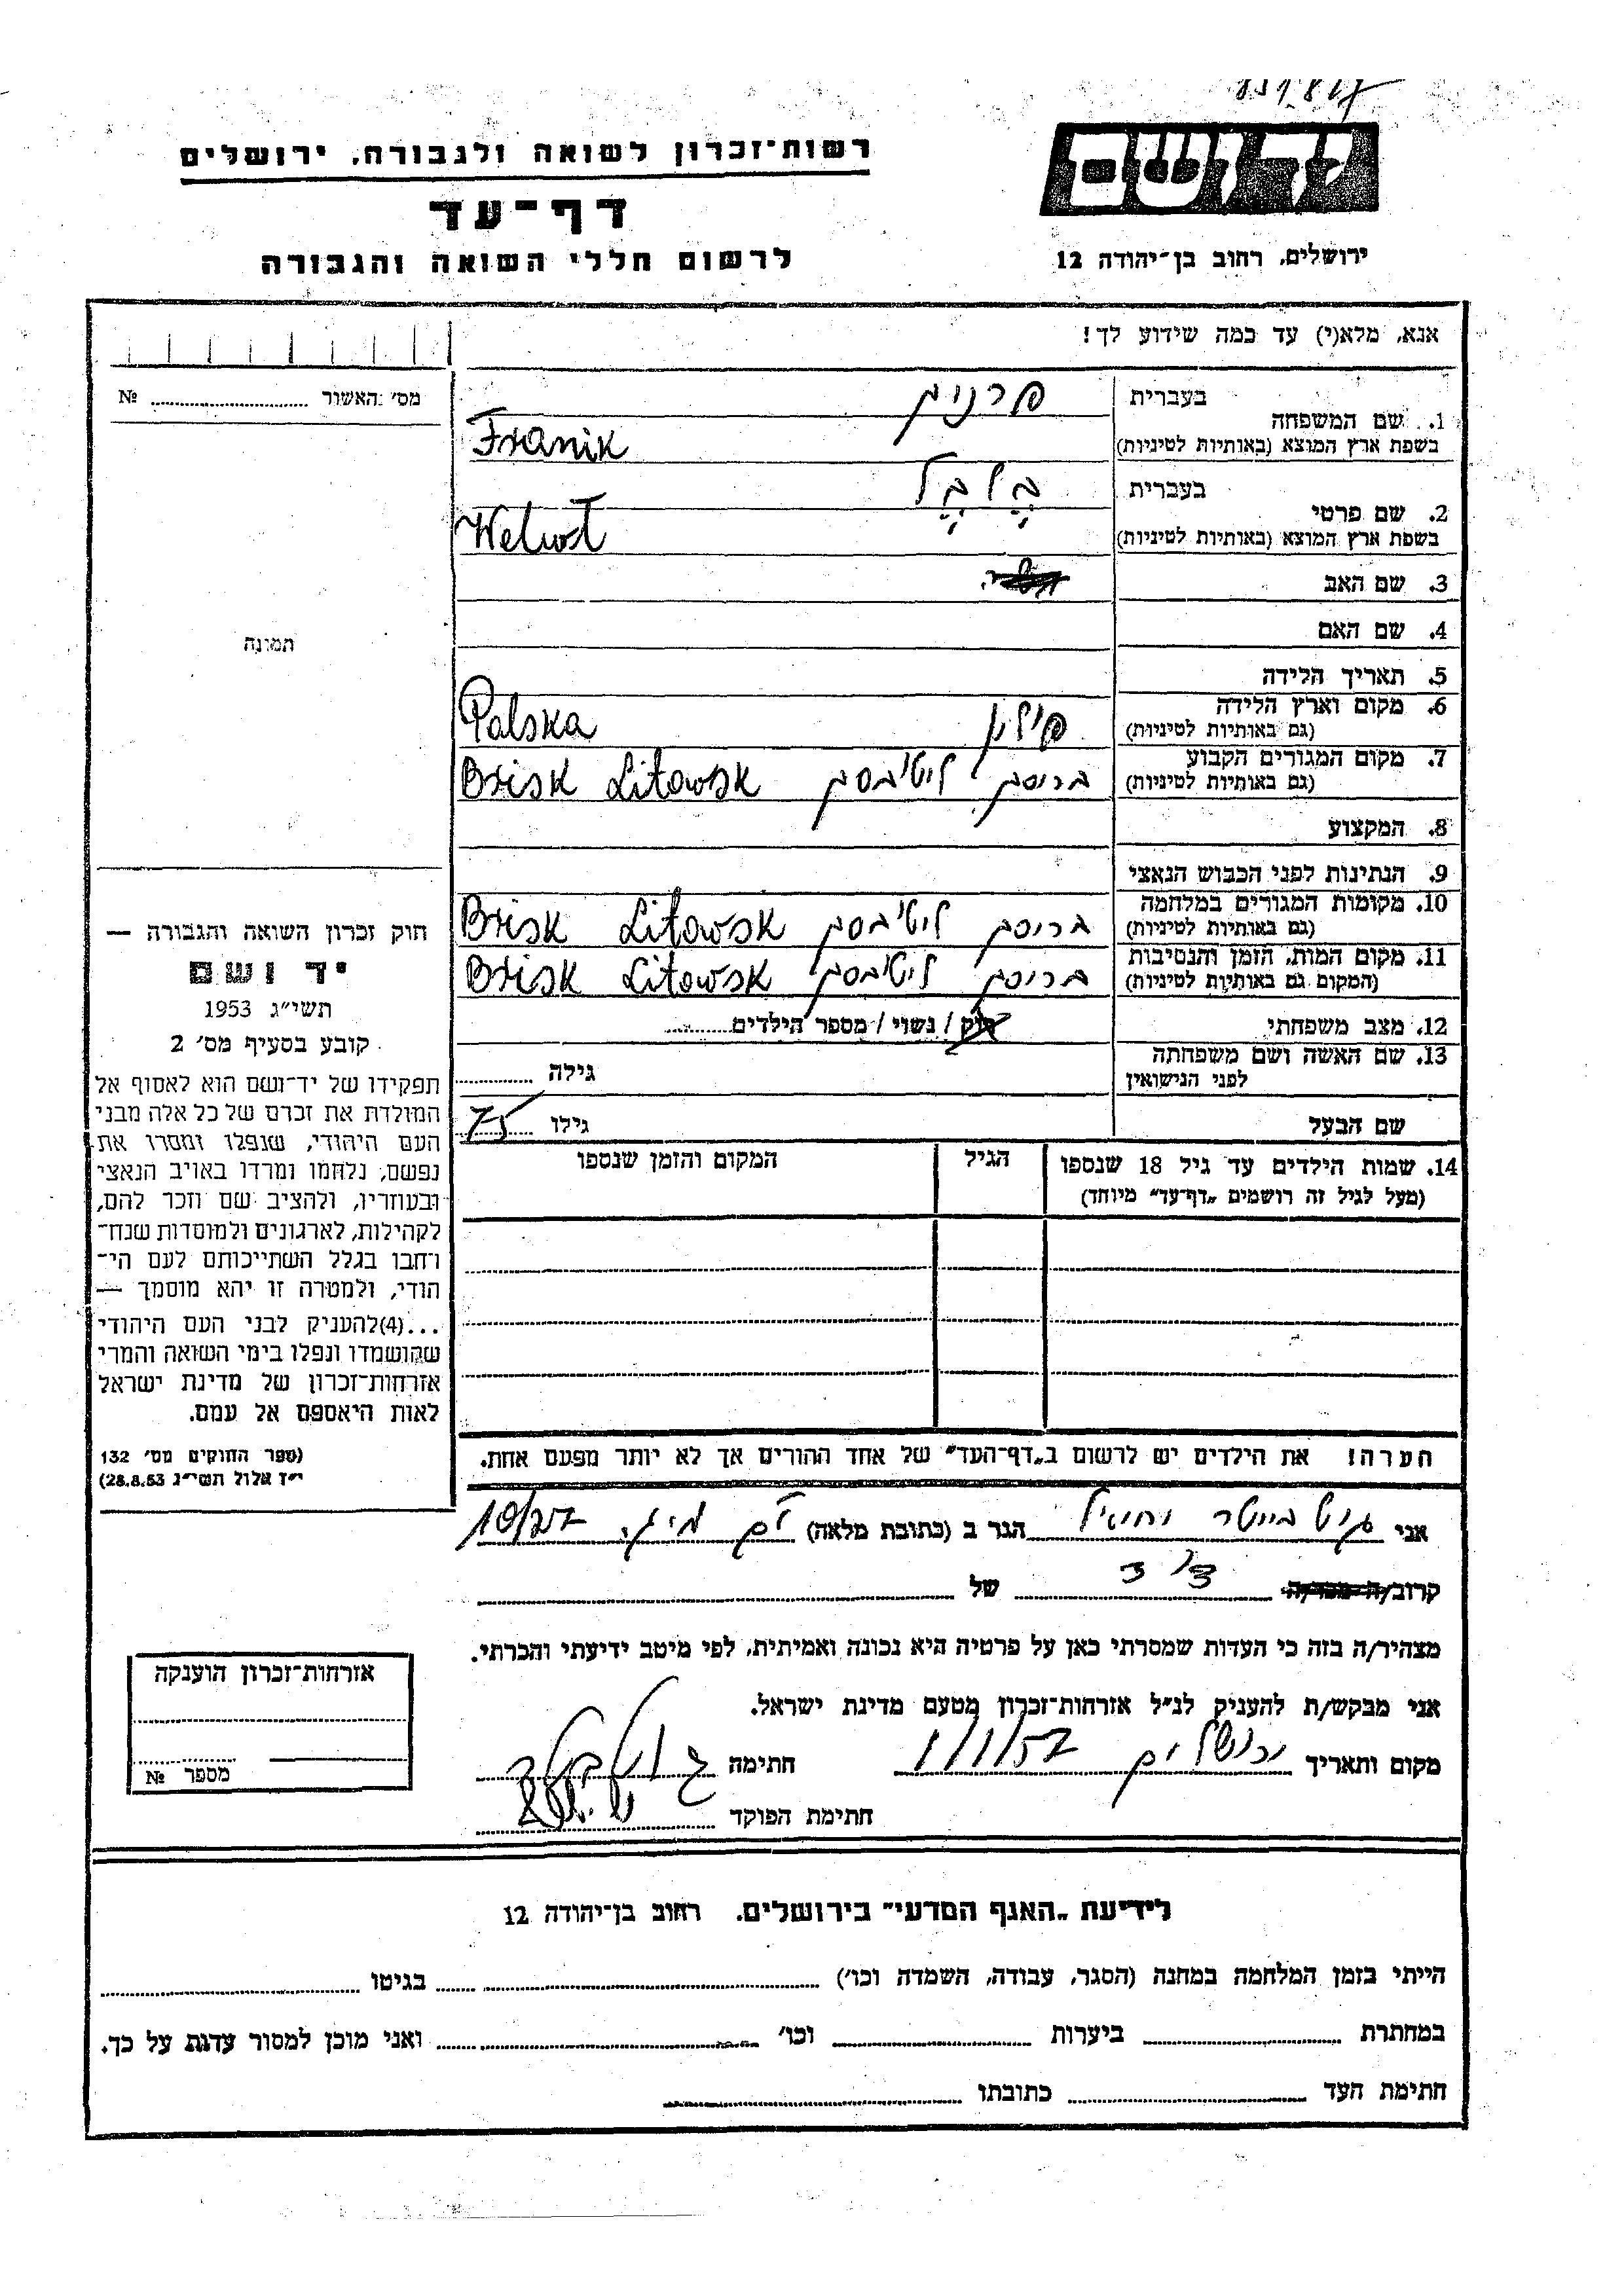 יד ושם
רשות־זכרון לשואה ולגבורה, ירושלים
דף־עד
לרשום חללי השואה והגבורה
ירושלים, רחוב בן־יהודה 12
אנא, מלא(י) עד כמה שידוע לך!
מס' האשור № 
1. שם המשפחה
בעברית פרניק
בשפת ארץ המוצא (באותיות לטיניות) Franik
2. שם פרטי
בעברית ולול
בשפת ארץ המוצא (באותיות לטיניות) Welwł
3. שם האב
4. שם האם
5. תאריך הלידה
6. מקום וארץ הלידה פולין Palska
(גם באותיות לטיניות)
7. מקום המגורים הקבוע בריסק ליטובסק Brisk Litowsk
(גם באותיות לטיניות)
8. המקצוע
9. הנתינות לפני הכבוש הנאצי
10. מקומות המגורים במלחמה בריסק ליטובסק Brisk Litowsk
(גם באותיות לטיניות)
11. מקום המות, הזמן והנסיבות בריסק ליטובסק Brisk Litowsk
(המקום גם באותיות לטיניות)
12. מצב משפחתי רוק / נשוי / מספר הילדים
13. שם האשה ושם משפחתה
לפני הנישואין גילה
שם הבעל גילו 75
14. שמות הילדים עד גיל 18 שנספו
(מעל לגיל זה רושמים „דף־עד" מיוחד)
הגיל
המקום והזמן שנספו
תמונה
חוק זכרון השואה והגבורה —
יד ושם
תשי״ג 1953
קובע בסעיף מס' 2
תפקידו של יד־ושם הוא לאסוף אל
המולדת את זכרם של כל אלה מבני
העם היהודי, שנפלו ומסרו את
נפשם, נלחמו ומרדו באויב הנאצי
ובעוזריו, ולהציב שם וזכר להם,
לקהילות, לארגונים ולמוסדות שנח־
רבו בגלל השתייכותם לעם הי־
הודי, ולמטרה זו יהא מוסמך —
...(4)להעניק לבני העם היהודי
שהושמדו ונפלו בימי השואה והמרי
אזרחות־זכרון של מדינת ישראל
לאות היאספם אל עמם.
(ספר החוקים מס' 132
י״ז אלול תשי״ג 28.8.53)
הערה! את הילדים יש לרשום ב„דף־העד" של אחד ההורים אך לא יותר מפעם אחת.
אני הגר ב (כתובת מלאה)
קרוב/ה מכר/ה של
מצהיר/ה בזה כי העדות שמסרתי כאן על פרטיה היא נכונה ואמיתית, לפי מיטב ידיעתי והכרתי.
אני מבקש/ת להעניק לנ״ל אזרחות־זכרון מטעם מדינת ישראל.
מקום ותאריך ירושלים 1/1/57 חתימה
חתימת הפוקד
אזרחות־זכרון הוענקה
מספר №
לידיעת „האגף המדעי" בירושלים, רחוב בן־יהודה 12
הייתי בזמן המלחמה במחנה (הסגר, עבודה, השמדה וכו') בגיטו
במחתרת ביערות וכו' ואני מוכן למסור עדות על כך.
חתימת העד כתובתו